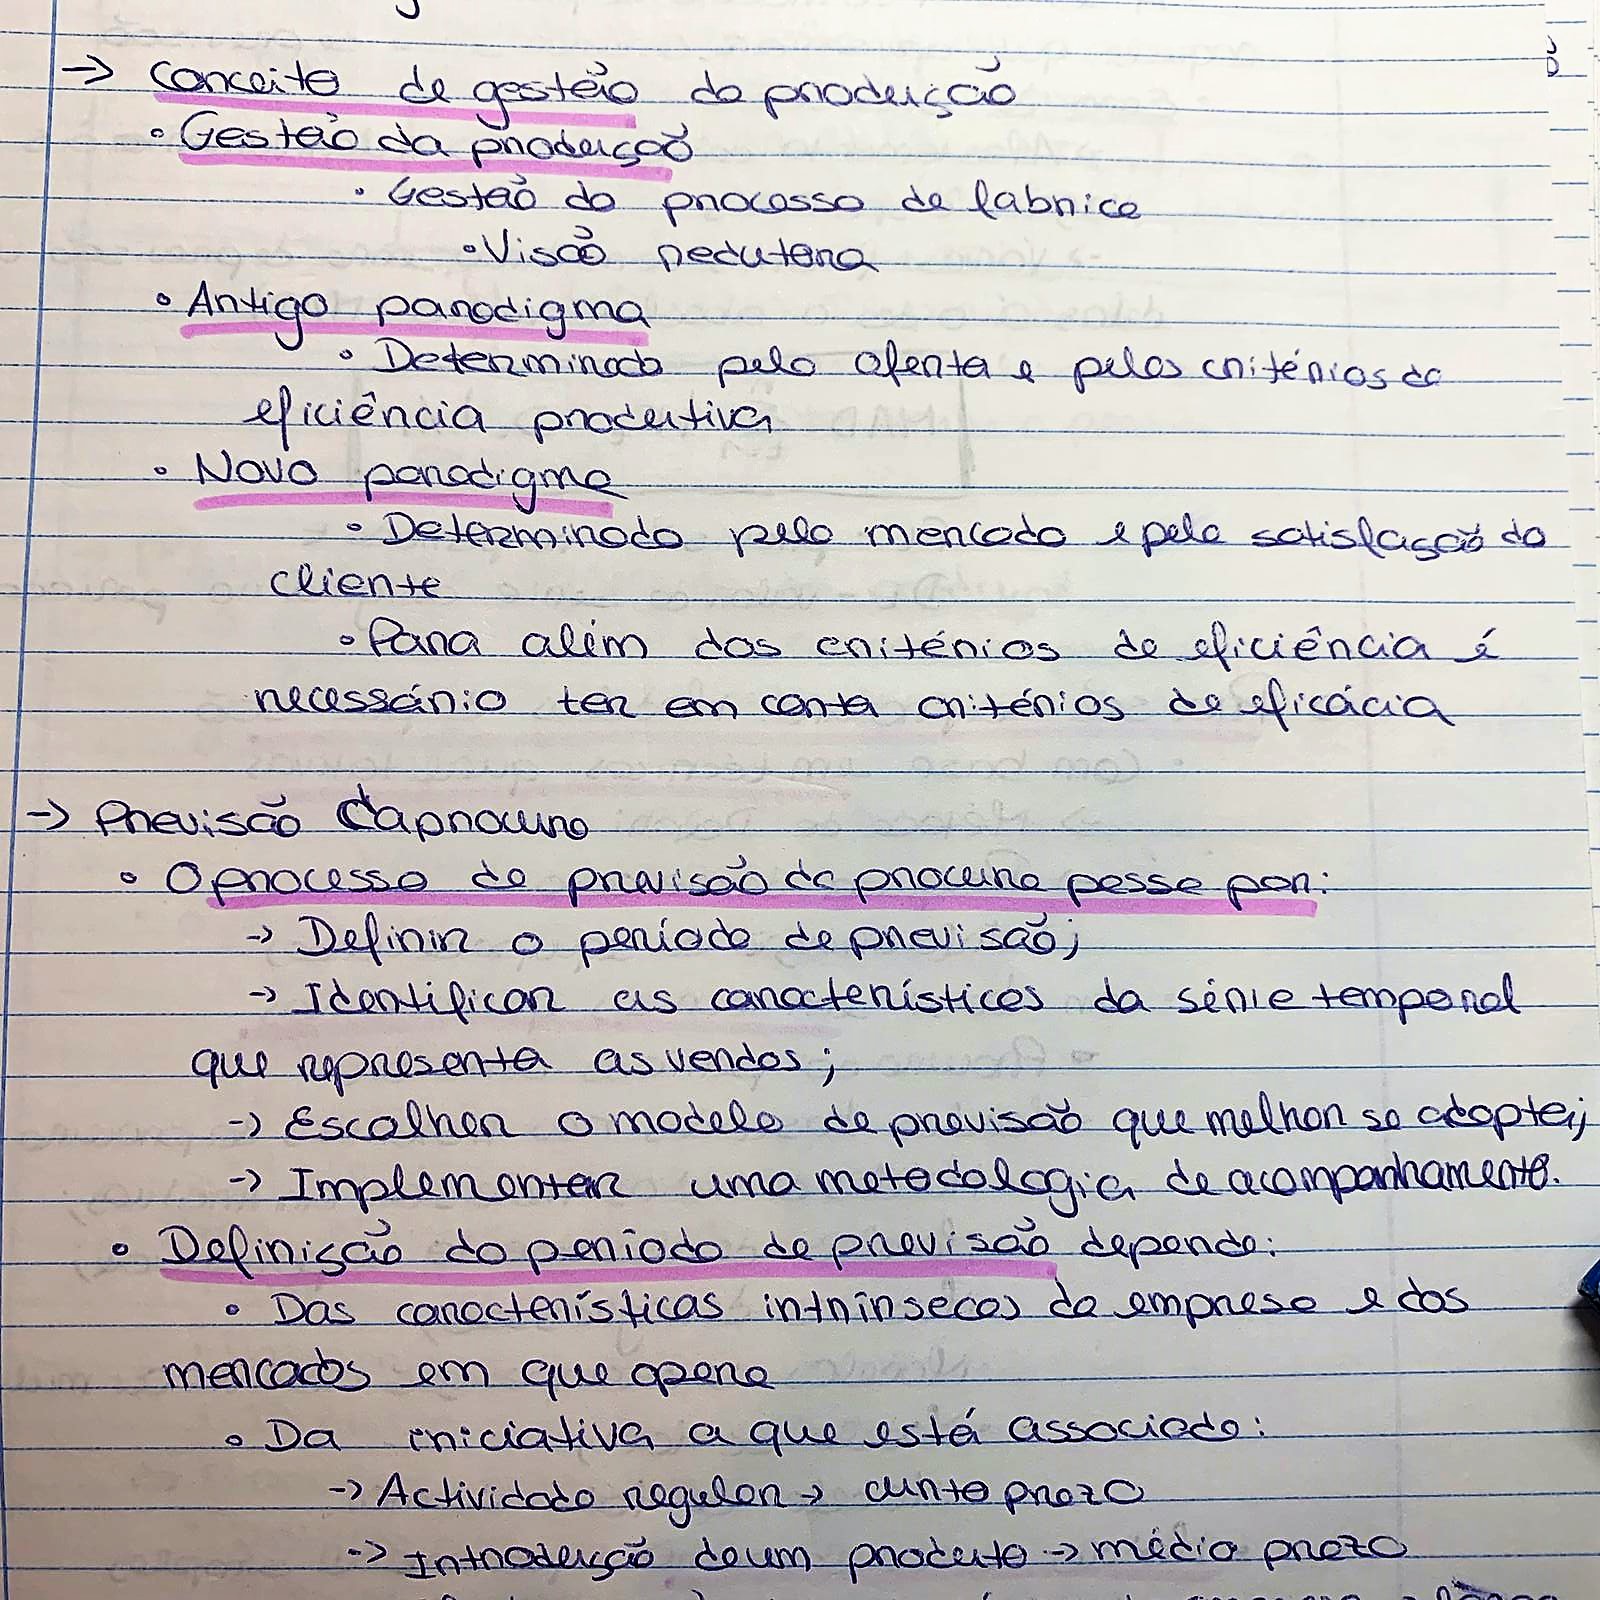 → Conceito de gestão da produção
• Gestão da produção
• Gestão do processo de fabrico
• Visão redutora
• Antigo paradigma
• Determinado pela oferta e pelos critérios de
eficiência produtiva
• Novo paradigma
• Determinado pelo mercado e pela satisfação do
cliente
• Para além dos critérios de eficiência é
necessário ter em conta critérios de eficácia
→ Previsão da procura
• O processo de previsão da procura passa por:
→ Definir o período de previsão;
→ Identificar as características da série temporal
que representa as vendas;
→ Escolher o modelo de previsão que melhor se adapte;
→ Implementar uma metodologia de acompanhamento.
• Definição do período de previsão depende:
• Das características intrínsecas da empresa e dos
mercados em que opera
• Da iniciativa a que está associada:
→ Actividade regular → curto prazo
→ Introdução de um produto → médio prazo